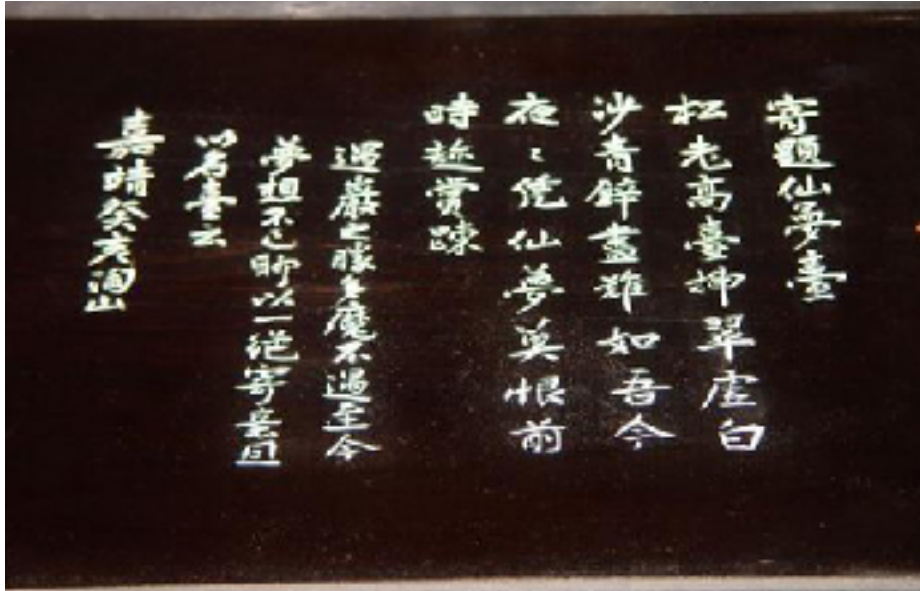 寄題仙夢臺
松老高臺揷翠虛白
沙青壁畫難如吾今
夜々凭仙夢莫恨前
時趁賞踈
巖之勝魔不過至今
夢想不已聊以一絶寄意且
以名臺云
嘉靖癸卯陶山